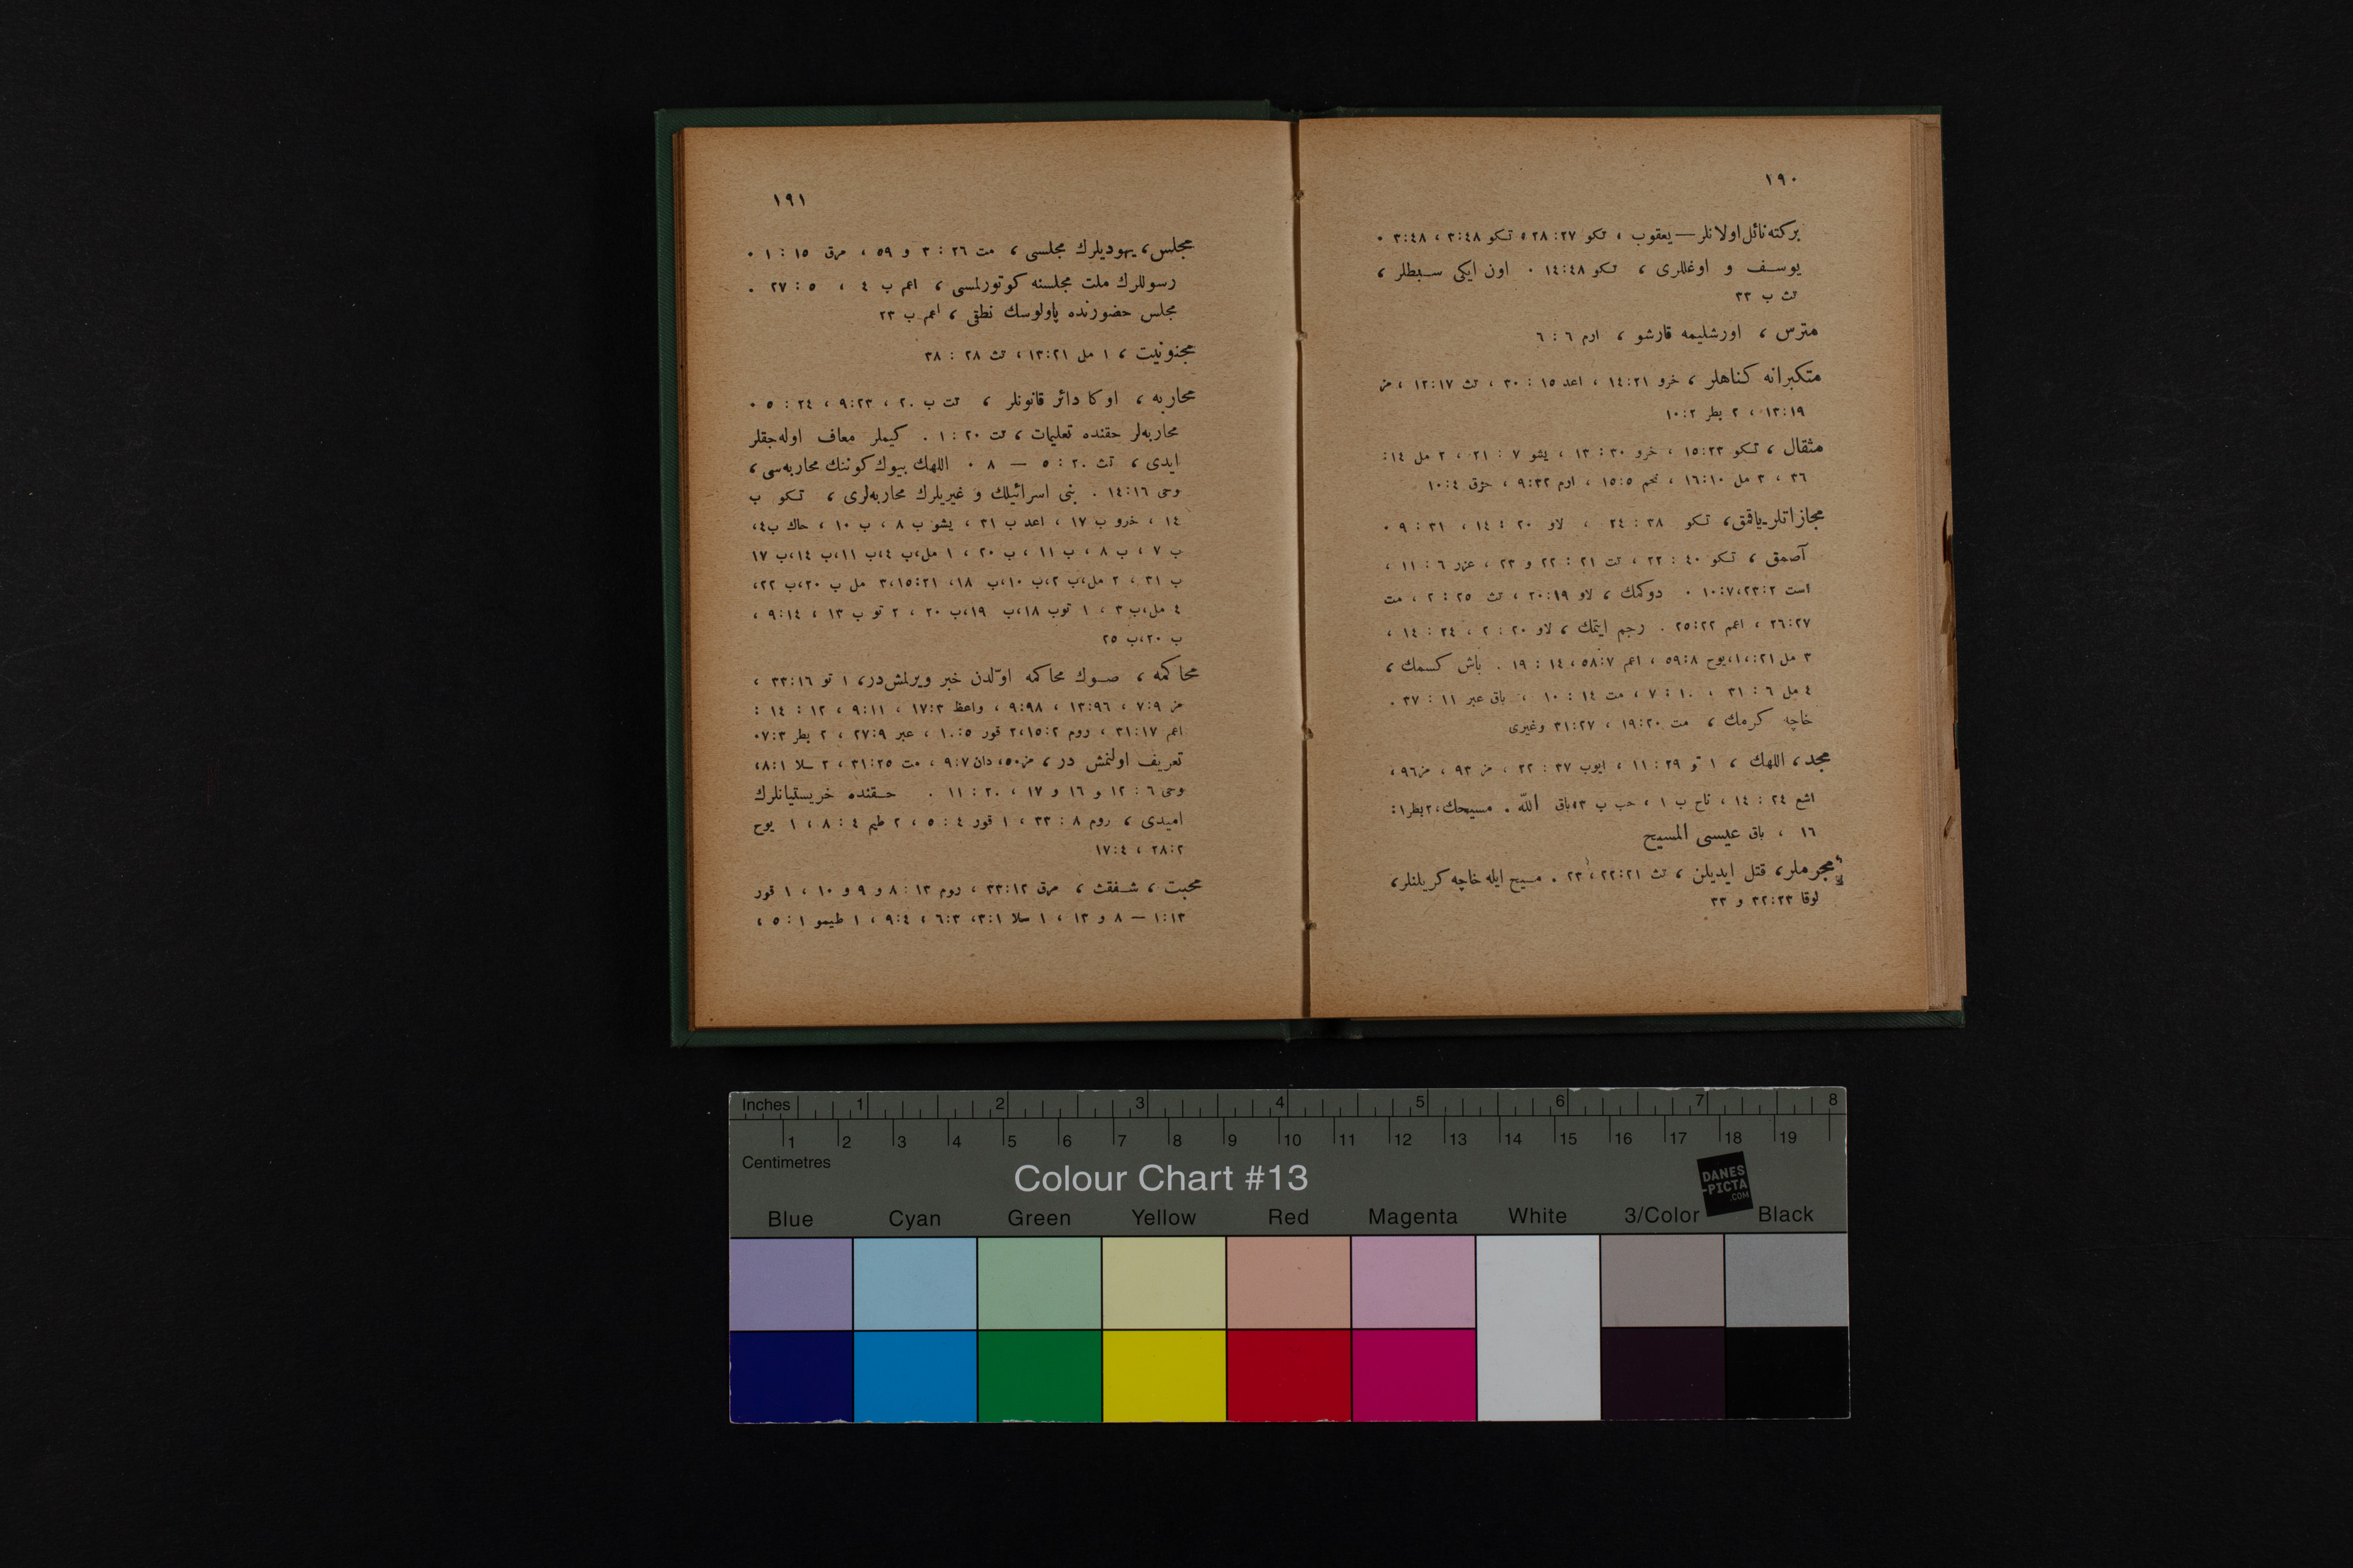 ١٩٠
بركته نائل اولانلر — يعقوب ، تكو ٢٧:‏٢٨ ، تكو ٤٨:‏٣ ، ٤٨:‏٣ ٠
يوسف و اوغللری ، تكو ٤٨:‏١٤ ٠ اون ايكی سبطلر ،
تث ب ٣٣
مترس ، اورشليمه قارشو ، ارم ٦ : ٦
متكبرانه كناهلر ، خرو ٢١:‏١٤ ، اعد ١٥ : ٣٠ ، تث ١٧:‏١٢ ، مز
١٩:‏١٣ ، ٢ بطر ٢:‏١٠
مثقال ، تكو ٢٣:‏١٥ ، خرو ٣٠ : ١٣ ، يشو ٧ : ٢١ ، ٢ مل ١٤:
٢٦ ، ٣ مل ١٠:‏١٦ ، نحم ٥:‏١٥ ، ارم ٣٢:‏٩ ، حزق ٤:‏١٠
مجازاتلر ـ ياقمق ، تكو ٣٨ : ٢٤ ، لاو ٢٠ : ١٤ ، ٢١ : ٩ ٠
آصمق ، تكو ٤٠ : ٢٢ ، تث ٢١ : ٢٢ و ٢٣ ، عزر ٦ : ١١ ،
است ٢:‏٢٣ ، ٧:‏١٠ ٠ دوكمك ، لاو ١٩:‏٢٠ ، تث ٢٥ : ٢ ، مت
٢٧:‏٢٦ ، اعم ٢٢:‏٢٥ ٠ رجم ايتمك ، لاو ٢٠ : ٢ ، ٢٤ : ١٤ ،
٣ مل ٢١:‏١٠ ، يوح ٨:‏٥٩ ، اعم ٧:‏٥٨ ، ١٤ : ١٩ ٠ باش كسمك ،
٤ مل ٦ : ٣١ ، ١٠ : ٧ ، مت ١٤ : ١٠ ، باق عبر ١١ : ٣٧ ٠
خاچه كرمك ، مت ٢٠:‏١٩ ، ٢٧:‏٣١ وغيری
مجد ، اللهك ، ١ تو ٢٩ : ١١ ، ايوب ٣٧ : ٢٢ ، مز ٩٣ ، مز ٩٦ ،
اشع ٢٤ : ١٤ ، ناح ب ١ ، حب ب ٣ ، باق الله ٠ مسيحك ، ٢ بطر ١:
١٦ ، باق عيسی المسيح
مجرملر ، قتل ايديلن ، تث ٢١:‏٢٢ ، ٢٣ ٠ مسيح ايله خاچه كريلنلر ،
لوقا ٢٣:‏٣٢ و ٣٣
١٩١
مجلس ، يهوديلرك مجلسی ، مت ٢٦ : ٣ و ٥٩ ، مرق ١٥ : ١ ٠
رسوللرك ملت مجلسنه كوتورلمسی ، اعم ب ٤ ، ٥ : ٢٧ ٠
مجلس حضورنده پاولوسك نطقی ، اعم ب ٢٣
مجنونيت ، ١ مل ٢١:‏١٣ ، تث ٢٨ : ٢٨
محاربه ، اوكا دائر قانونلر ، تث ب ٢٠ ، ٢٣:‏٩ ، ٢٤ : ٥ ٠
محاربه‌لر حقنده تعليمات ، تث ٢٠ : ١ ٠ كيملر معاف اوله‌جقلر
ايدی ، تث ٢٠ : ٥ — ٨ ٠ اللهك بيوك كوننك محاربه‌سی ،
وحی ١٦:‏١٤ ٠ بنی اسرائيلك و غيريلرك محاربه‌لری ، تكو ب
١٤ ، خرو ب ١٧ ، اعد ب ٢١ ، يشو ب ٨ ، ب ١٠ ، حاك ب ٤ ،
ب ٧ ، ب ٨ ، ب ١١ ، ب ٢٠ ، ١ مل ، ب ٤ ، ب ١١ ، ب ١٤ ، ب ١٧
ب ٣١ ، ٢ مل ، ب ٢ ، ب ١٠ ، ب ١٨ ، ٢١:‏١٥ ، ٣ مل ب ٢٠ ، ب ٢٢ ،
٤ مل ، ب ٣ ، ١ تو ب ١٨ ، ب ١٩ ، ب ٢٠ ، ٢ تو ب ١٣ ، ١٤:‏٩ ،
ب ٢٠ ، ب ٢٥
محاكمه ، صوك محاكمه اوّلدن خبر ويرلمش‌در ، ١ تو ١٦:‏٣٣ ،
مز ٩:‏٧ ، ٩٦:‏١٣ ، ٩٨:‏٩ ، واعظ ٣:‏١٧ ، ١١:‏٩ ، ١٢ : ١٤ :
اعم ١٧:‏٣١ ، روم ٢:‏١٥ ، ٢ قور ٥:‏١٠ ، عبر ٩:‏٢٧ ، ٢ بطر ٣:‏٧ ٠
تعريف اولنمش در ، مز ٥٠ ، دان ٧:‏٩ ، مت ٢٥:‏٣١ ، ٢ سلا ١:‏٨ ،
وحی ٦ : ١٢ و ١٦ و ١٧ ، ٢٠ : ١١ ٠ حقنده خريستيانلرك
اميدی ، روم ٨ : ٣٣ ، ١ قور ٤ : ٥ ، ٢ طيم ٤ : ٨ ، ١ يوح
٢:‏٢٨ ، ٤:‏١٧
محبت ، شفقت ، مرق ١٢:‏٣٣ ، روم ١٣ : ٨ و ٩ و ١٠ ، ١ قور
١٣:‏١ — ٨ و ١٣ ، ١ سلا ١:‏٣ ، ٣:‏٦ ، ٤:‏٩ ، ١ طيمو ١ : ٥ ،
Inches 1 2 3 4 5 6 7 8
1 2 3 4 5 6 7 8 9 10 11 12 13 14 15 16 17 18 19
Centimetres
Colour Chart #13
DANES
-PICTA
.COM
Blue Cyan Green Yellow Red Magenta White 3/Color Black